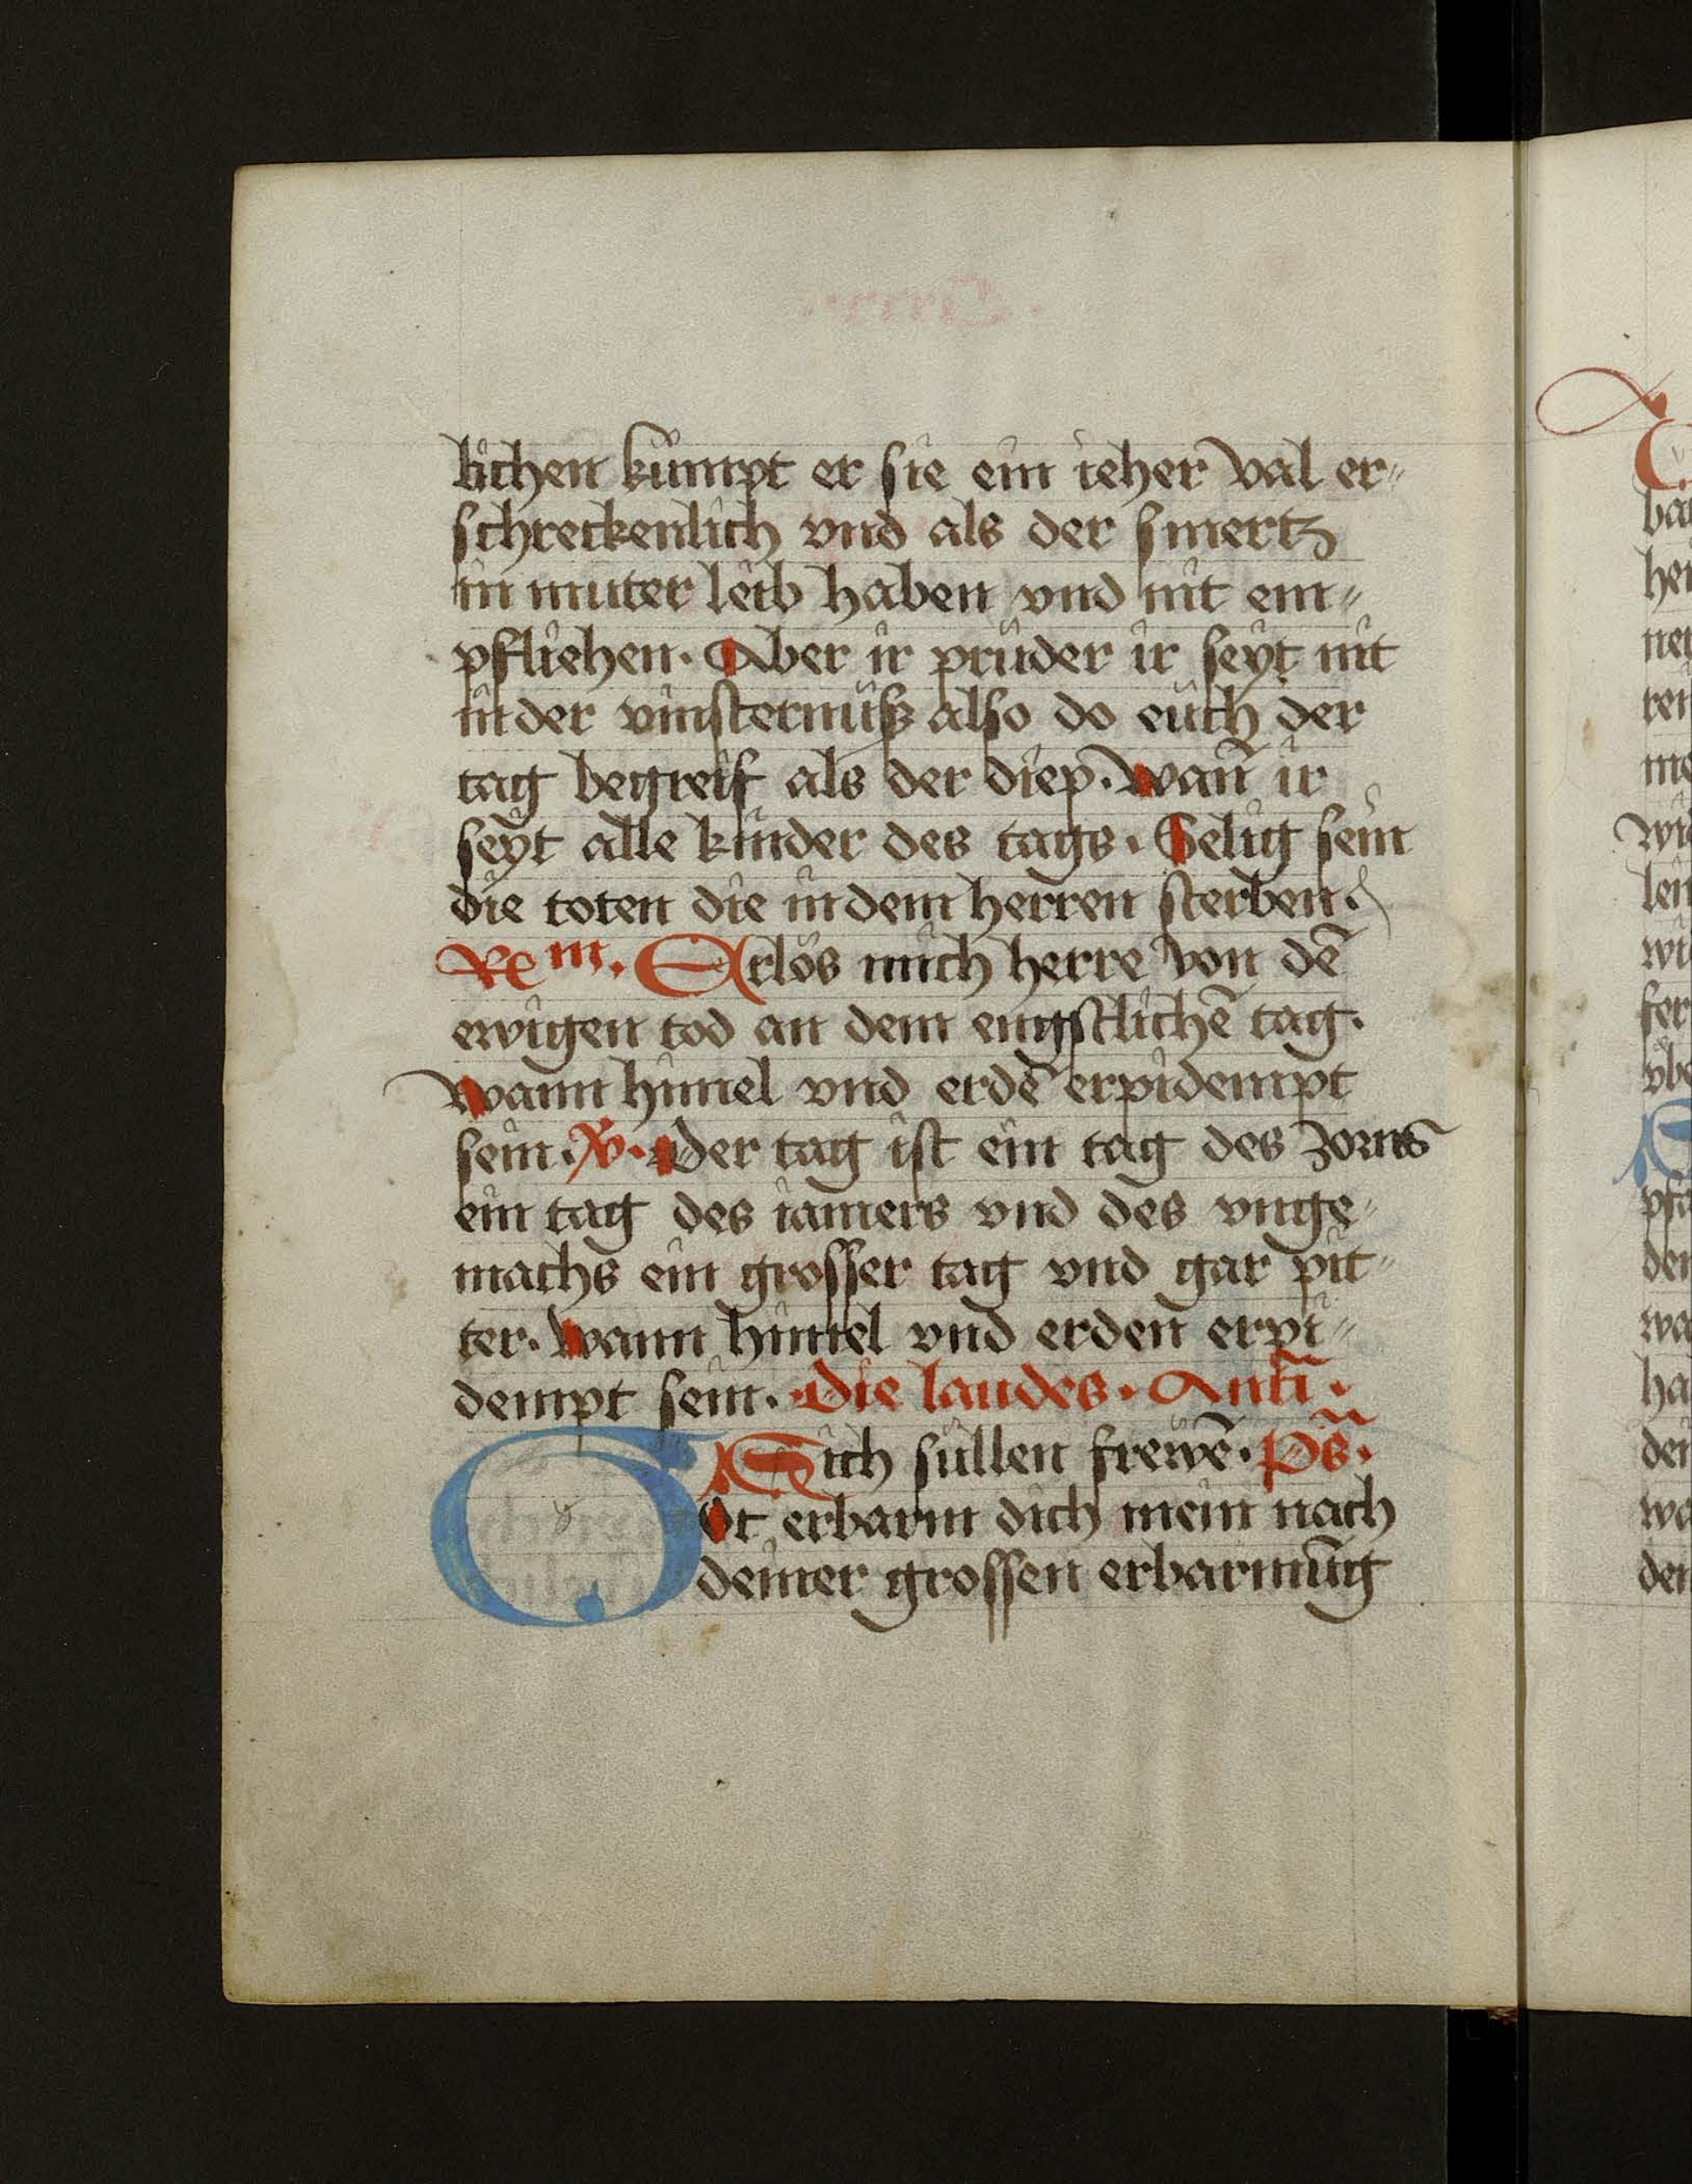 lichen kümpt er sie ein ieher val er„
schreckenlich vnd als der smertz
in muter leib haben vnd nit em„
pfliehen. Aber ir prüder ir seyt nit
in der vinsternüß also do eüch der
tag begreif als der diep. wan̄ ir
seyt alle kinder des tags. Selig sein
die toten die in dem herren sterben.
Re m. Erlös mich herre von dē
ewigen tod an dem engstlichē tag.
wann himel vnd erdē erpidempt
sein. V. Der tag ist ein tag des zorns
ein tag des iamers vnd des vnge„
machs ein grosser tag vnd gar pit„
ter. wann himel vnd erden erpi„
dempt sein. Die laudes. Anti.
Sich süllen frewē. Ps.
Got erbarm dich mein nach
deiner grossen erbarmūg